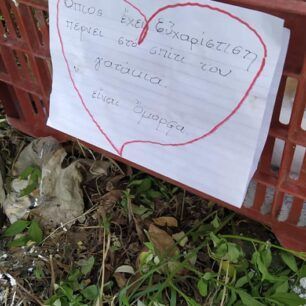 Όποιος έχει Εὐχαρίστιση
περνει στο σπίτι του
γατάκια.
είναι όμορφα.